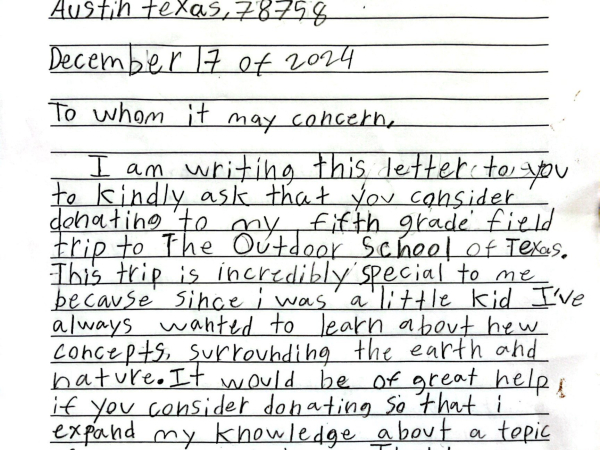 Austin Texas, 78758
December 17 of 2024
To whom it may concern,
I am writing this letter to you
to kindly ask that you consider
donating to my fifth grade field
trip to The Outdoor School of Texas.
This trip is incredibly special to me
because since i was a little kid I've
always wanted to learn about new
concepts, surrounding the earth and
nature. It would be of great help
if you consider donating so that i
expand my knowledge about a topic